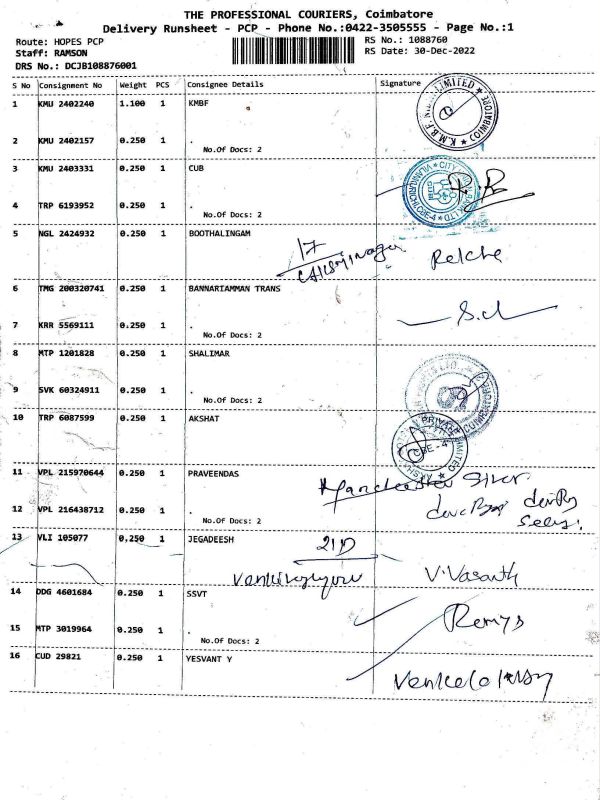 THE PROFESSIONAL COURIERS, Coimbatore
Delivery Runsheet - PCP - Phone No.:0422-3505555 - Page No.:1
Route: HOPES PCP RS No.: 1088760
Staff: RAMSON RS Date: 30-Dec-2022
DRS No.: DCJB108876001
S No Consignment No Weight PCS Consignee Details Signature
1 KMU 2402240 1.100 1 KMBF
2 KMU 2402157 0.250 1 .
No.Of Docs: 2
K.M.B.F. LIMITED ★ COIMBATORE ★
3 KMU 2403331 0.250 1 CUB
4 TRP 6193952 0.250 1 .
No.Of Docs: 2
5 NGL 2424932 0.250 1 BOOTHALINGAM
17
6 TMG 200320741 0.250 1 BANNARIAMMAN TRANS
7 KRR 5569111 0.250 1 .
No.Of Docs: 2
8 MTP 1201828 0.250 1 SHALIMAR
9 SVK 60324911 0.250 1 .
No.Of Docs: 2
10 TRP 6087599 0.250 1 AKSHAT
CBE-4
11 VPL 215970644 0.250 1 PRAVEENDAS
12 VPL 216438712 0.250 1 .
No.Of Docs: 2
13 VLI 105077 0.250 1 JEGADEESH
V. Vasanth
14 DDG 4601684 0.250 1 SSVT
15 MTP 3019964 0.250 1 .
No.Of Docs: 2
Remya
16 CUD 29821 0.250 1 YESVANT Y